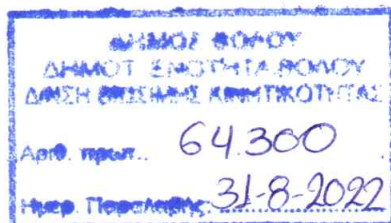 ΔΗΜΟΣ ΒΟΛΟΥ
ΔΗΜΟΤ. ΕΝΟΤΗΤΑ ΒΟΛΟΥ
Δ/ΝΣΗ ΚΙΝΗΤΙΚΟΤΗΤΑΣ
Αριθ. πρωτ.. 64.300
Ημερ. Παραλαβής: 31-8-2022